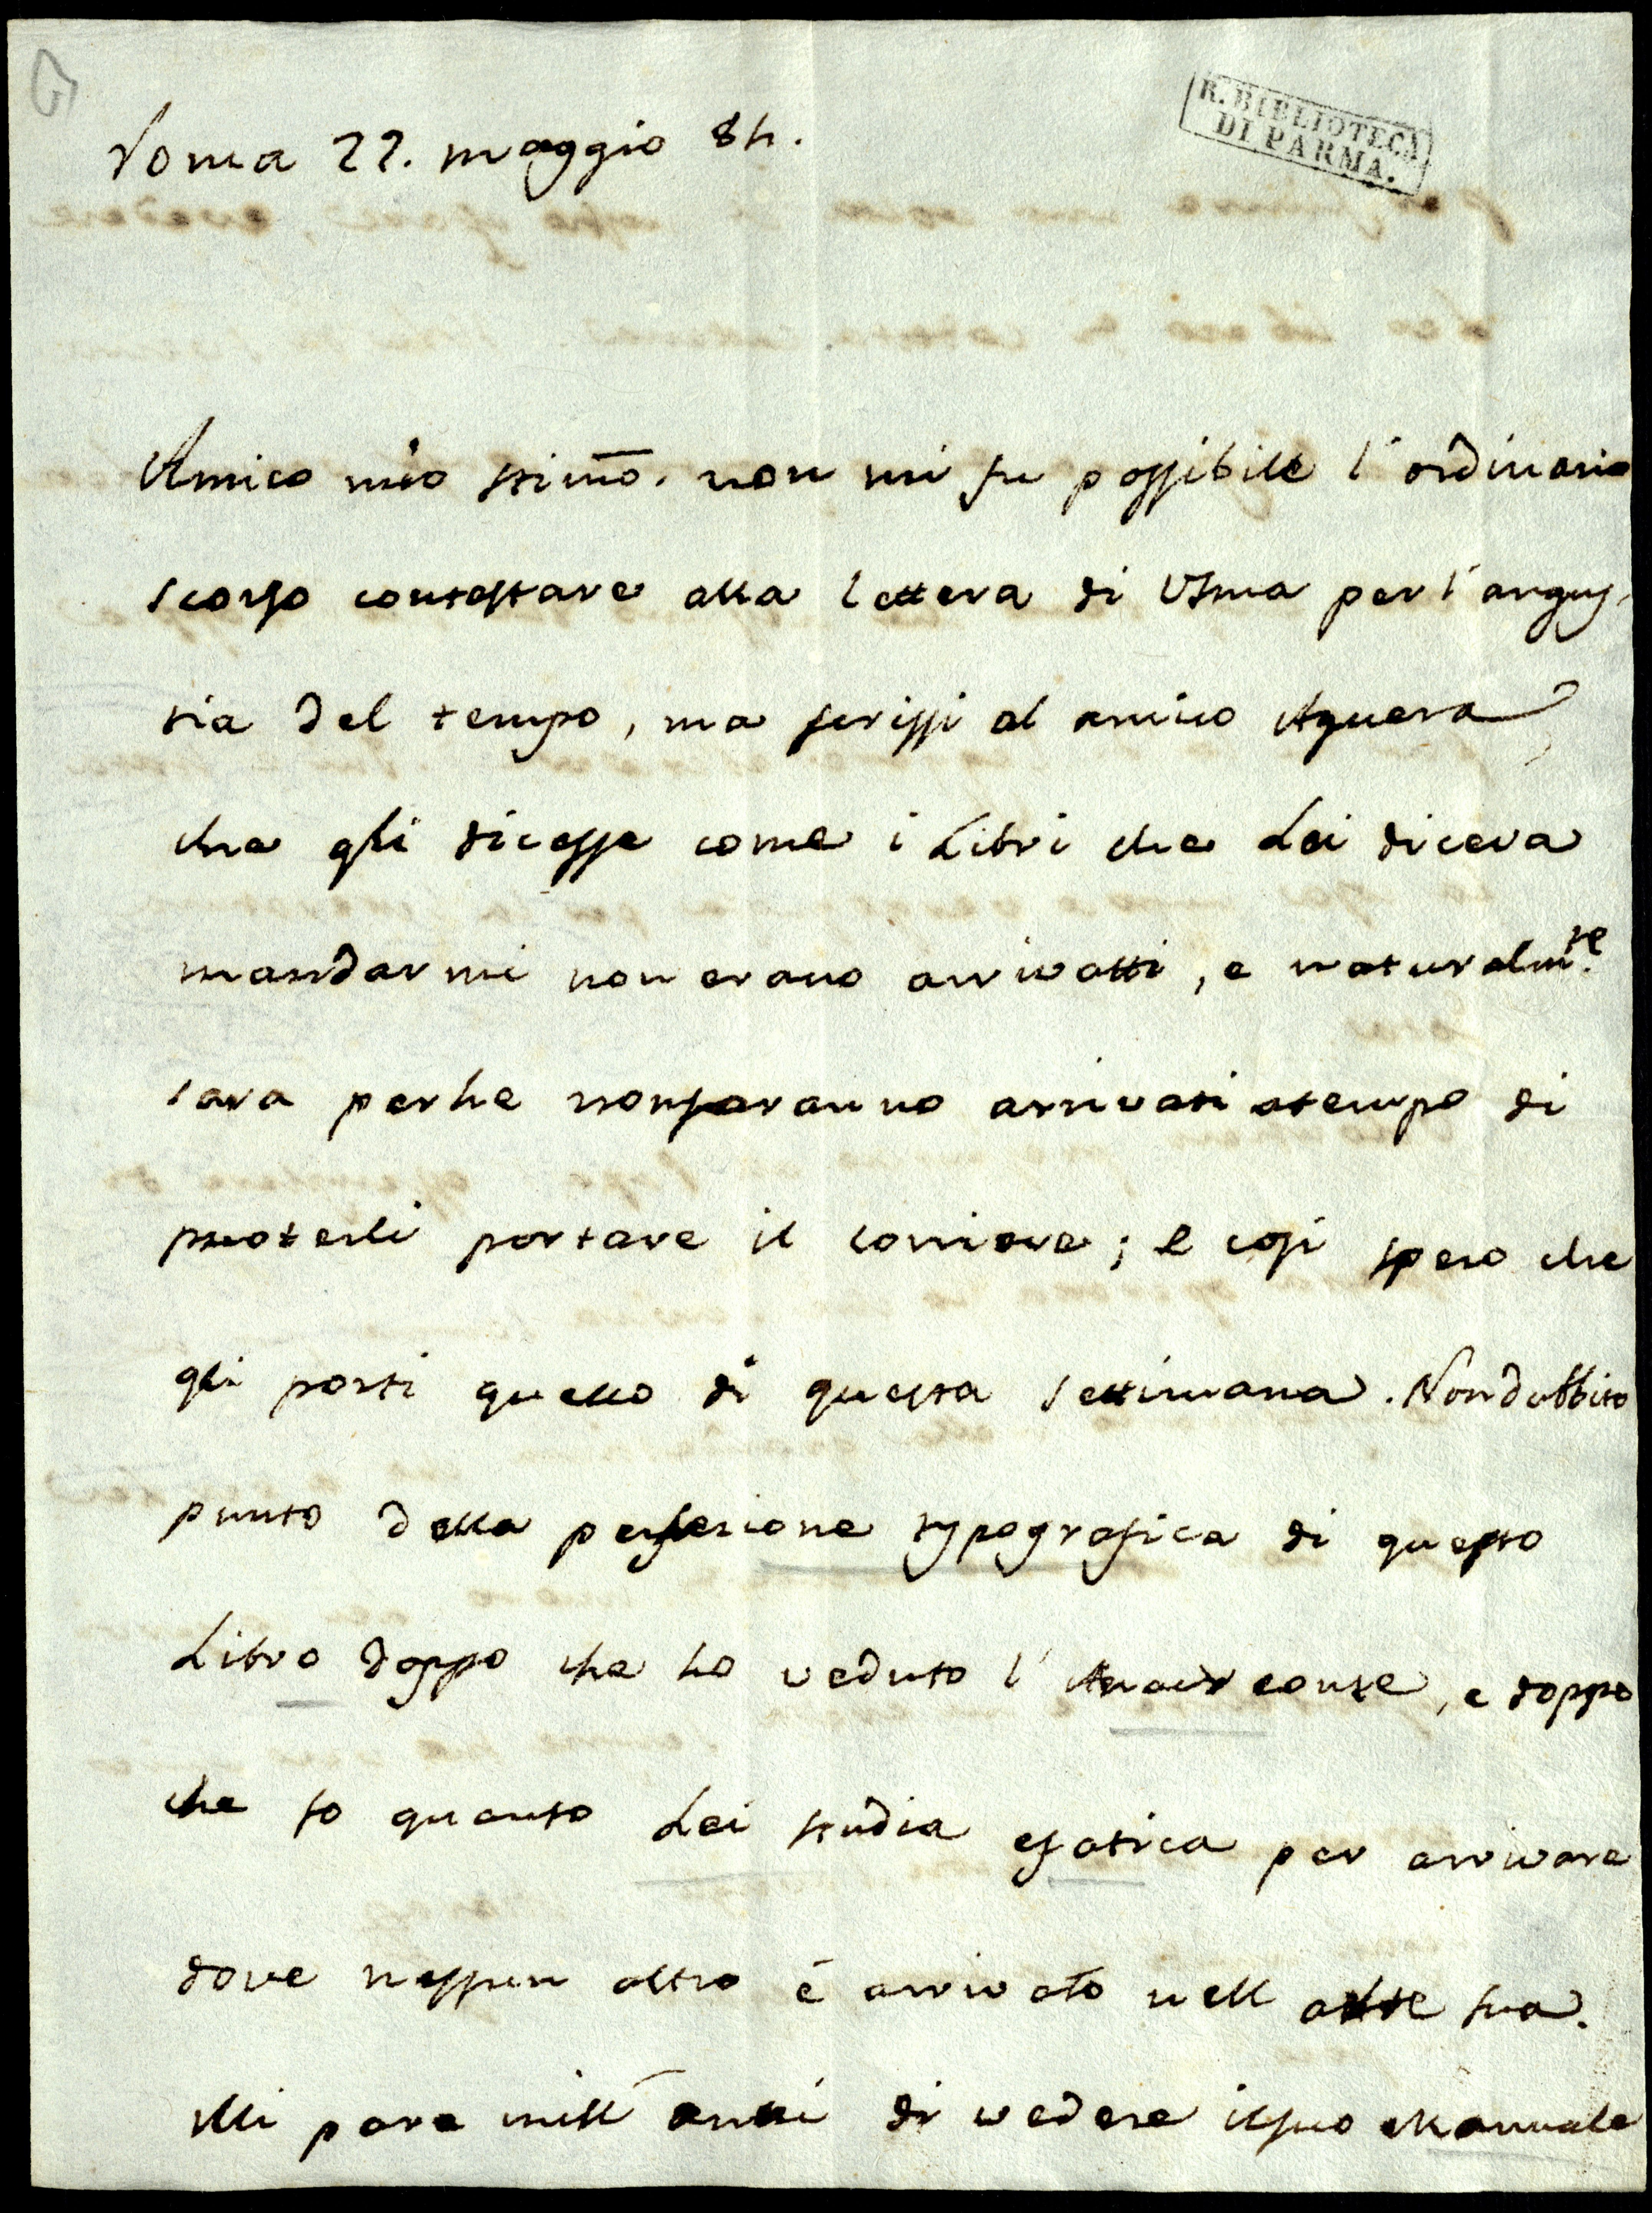 Roma 22. maggio 84.
R. BIBLIOTECA
DI PARMA.
Amico mio stimo. non mi fu possibile l'ordinario
scorso contestare alla lettera di VSma per l'angus,
tia del tempo, ma scrissi al amico Aguera
che gli dicesse come i Libri che Lei diceva
mandarmi non erano arrivatti, e naturalmte.
sara perhe nonsaranno arrivati atempo di
puoterli portare il corriere; e cosi spero che
gli porti quello di questa settimana. Nondubbito
punto della perfezione typografica di questo
Libro doppo che ho veduto l'Anacreonte, e doppo
che so quanto Lei studia efatica per arrivare
dove nessun altro é arrivato nell arte sua.
Mi pare mill anni di vedere ilsuo Manuale